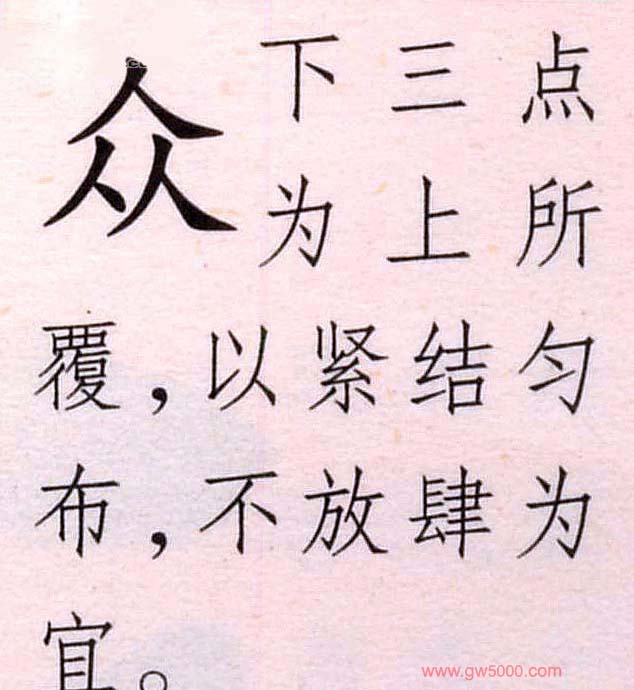 众
下三点
为上所
覆，以紧结匀
布，不放肆为
宜。
www.gw5000.com